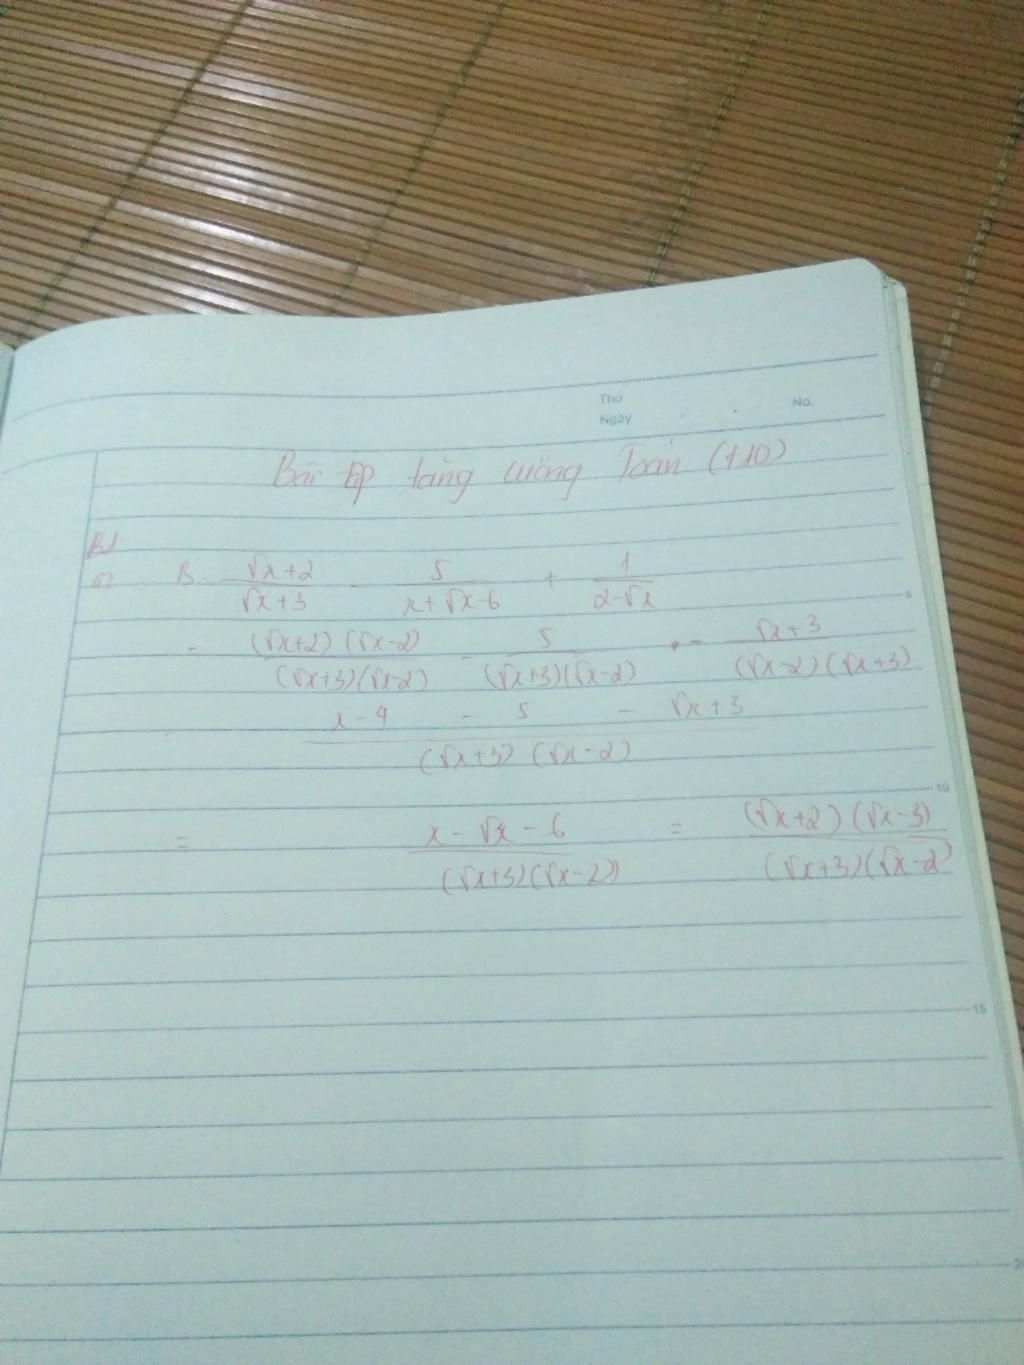 Thứ
Ngày . . No.
Bài tập tăng cường Toán (t10)
B1
a) B = (√x+2)/(√x+3) - 5/(x+√x-6) + 1/(2-√x)
= (√x+2)(√x-2)/(√x+3)(√x-2) - 5/(√x+3)(√x-2) - (√x+3)/(√x-2)(√x+3)
= (x-4 - 5 - √x+3)/(√x+3)(√x-2)
= (x-√x-6)/(√x+3)(√x-2) = (√x+2)(√x-3)/(√x+3)(√x-2)
5
10
15